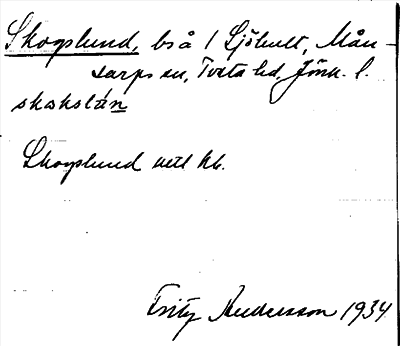 Skogslund, bs å 1 Sjöhult, Mån-
sarps sn, Tveta hd, Jönk. l.
skokslún
Skogslund uttl kb.
Fritz Andersson 1934